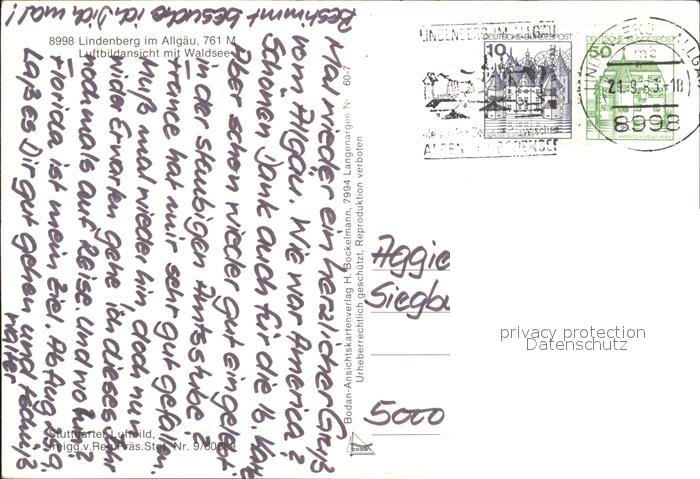 8998 Lindenberg im Allgäu, 761 M
Luftbildansicht mit Waldsee
Mal wieder ein herzlicher Gruß
vom Allgäu. Wie war America?
Schönen Dank auch für die lb. Karte
Aber schon wieder gut eingelebt
in der staubigen Amtsstube?
France hat mir sehr gut gefallen.
Muß mal wieder hin, doch nun
wider Erwarten gehe ich dieses Jahr
nochmals auf Reise. Und wohin?
Florida ist mein Ziel. Abflug
Laß es Dir gut gehen und
Bestimmt besuche ich Dich mal!
Stuttgarter Luftbild,
Freigg.v.Reg.Präs.Stgt. Nr. 9/60
Bodan-Ansichtskartenverlag H. Bockelmann, 7994 Langenargen Nr. 60-7
Urheberrechtlich geschützt. Reproduktion verboten
bodan
LINDENBERG IM ALLGÄU
ALPEN BODENSEE
10
DEUTSCHE BUNDESPOST
50
DEUTSCHE BUNDESPOST
mb
21.9.83-18
8998
Aggie
Sieglo
5000
privacy protection
Datenschutz